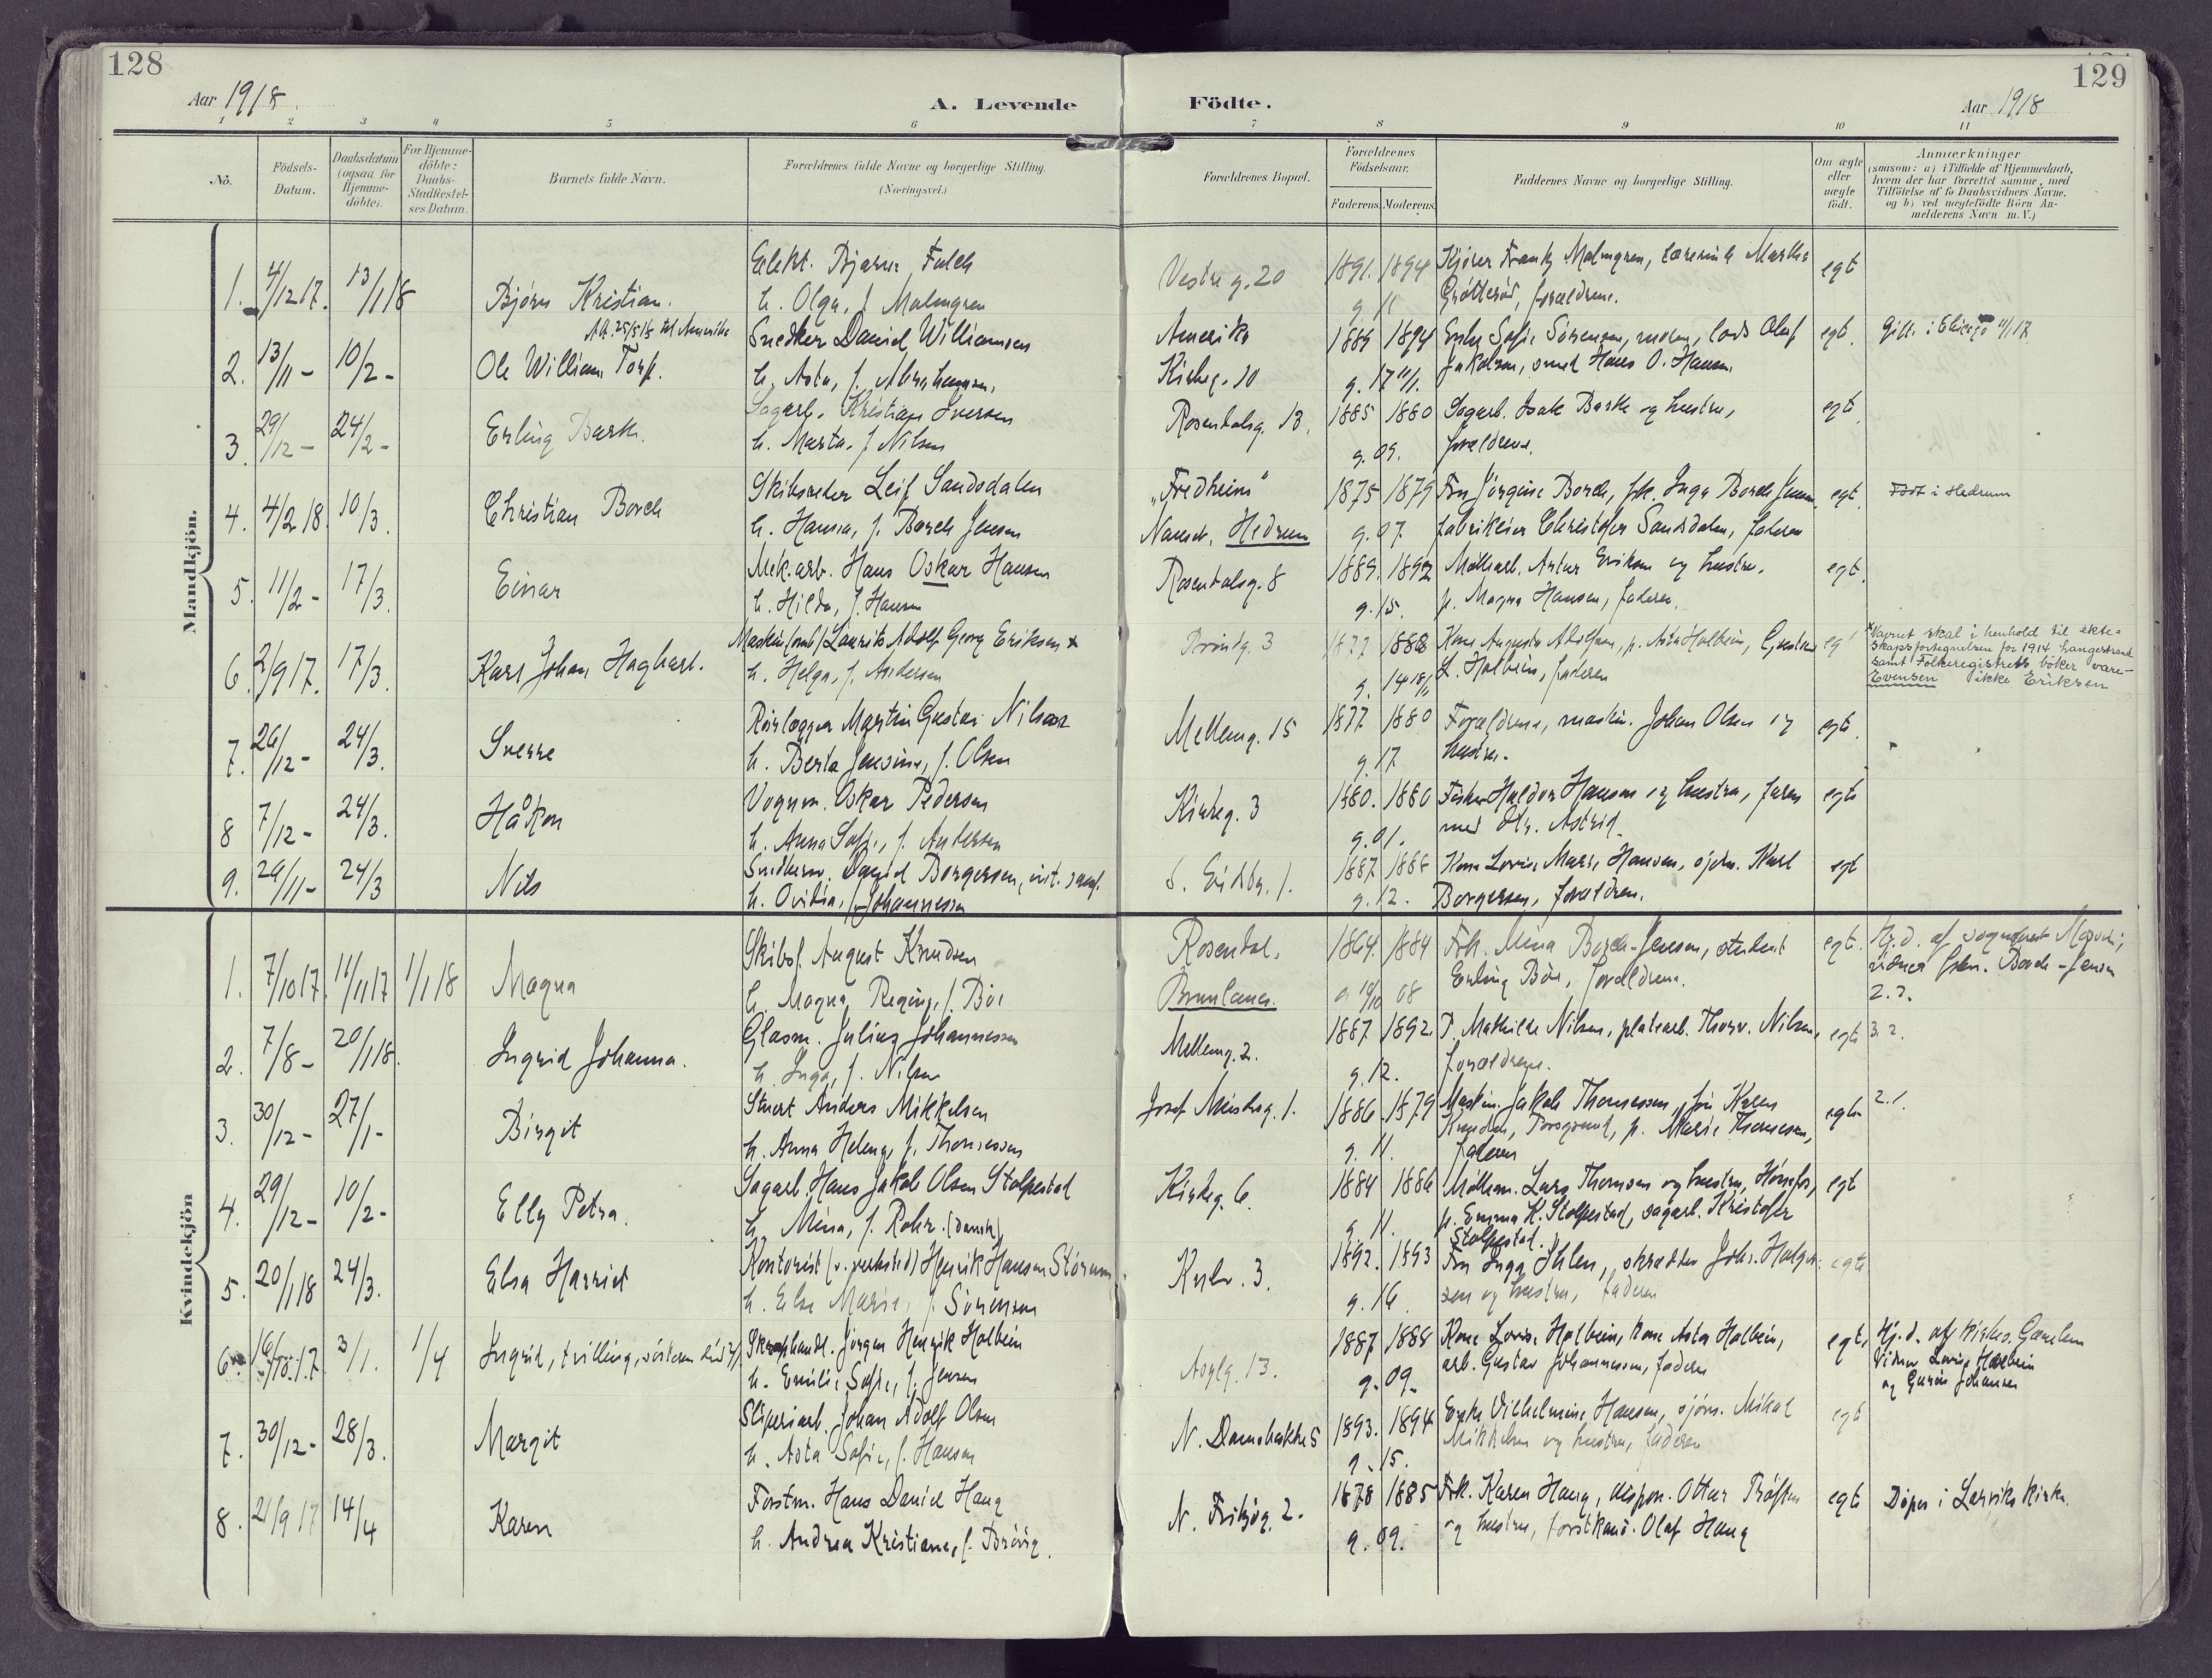 128
129
Aar 1918.
A. Levende
Födte.
Aar 1918
1 2 3 4 5 6 7 8 9 10 11
No.
Födsels-
Datum.
Daabsdatum
(ogsaa for
Hjemme-
döbte).
For Hjemme-
döbte:
Daabs-
Stadfæstel-
ses Datum.
Barnets fulde Navn.
Forældrenes fulde Navne og borgerlige Stilling.
(Næringsvei.)
Forældrenes Bopæl.
Forældrenes
Födselsaar.
Faderens. Moderens.
Faddernes Navne og borgerlige Stilling.
Om ægte
eller
uægte
födt.
Anmærkninger
(saasom: a) i Tilfælde af Hjemmedaab,
hvem der har forrettet samme, med
Tilföielse af to Daabsvidners Navne.
og b) ved uægtefödte Börn An-
melderens Navn m. V.)
Mandkjön.
1. 4/12 17. 13/1 18 Bjørn Kristian.
Elekt. Bjarne Falch
h. Olga, f. Malmgren
Vestre g. 20 1891. 1894
g. 11
Frantz Malmgren, lærerinde Martha
Grøtterød, forældrene.
egt
2. 13/11 - 10/2 - Ole William Torp.
Att. 25/5 18 til Amerika
Snedker Daniel Williamsen
h. Asta, f. Abrahamsen.
Amerika
Kirkeg. 10
1889 1894
g. 17 11/1.
Enke Sofie Sörensen, moderen, lods Olaf
Jakobsen, smed Hans O. Hansen.
egt. Gift i Chicago 11/1 17
3. 29/12 - 24/2 - Erling Bark.
Sagarb. Kristian Iversen
h. Marta, f. Nilsen
Rosendalsg. 13. 1885 1880
g. 09.
Sagarb. Isak Bark og hustru,
forældrene.
egt
4. 4/2 18. 10/3. Christian Borch
Skibsreder Leif Sandsdalen
h. Hanna, f. Borch Jensen
"Fredheim"
Nanset, Hedrum
1875 1879
g. 07.
Fru Jörgine Borch, frk. Inga Borch Jensen,
fabrikeier Christofer Sandsdalen, faderen
egt. Født i Hedrum
5. 11/2 - 17/3. Einar
Mek.arb. Hans Oskar Hansen
h. Hilda, f. Hansen
Rosendalsg. 8 1889. 1892
g. 15.
Möllearb. Artur Eriksen og hustru.
p. Magna Hansen, faderen.
egt.
6. 2/9 17. 17/3. Karl Johan Hagbart.
Maskin(omb) Laurits Adolf Georg Eriksen x
h. Helga, f. Andersen
Dronig. 3 1877 1888
g. 14 18/1
Kone Augusta Adolfsen, p. Asta Holbein, Gustav
L. Holbein, faderen
egt
x Navnet skal i henhold til ekte-
skapsfortegnelsen for 1914 Langestrand
samt Folkeregistrets böker være -
Evensen ikke Eriksen
7. 26/12 - 24/3. Sverre
Rörlægger Martin Gustav Nilsen
h. Berta Jensine, f. Olsen
Mellemg. 15 1877. 1880
g. 17
Forældrene, maskin. Johan Olsen og
hustru.
egt.
8 7/12 - 24/3. Håkon
Vognm. Oskar Pedersen
h. Anna Sofie, f. Andersen
Kirkeg. 3 1880. 1880
g. 01.
Fisker Haldor Hansen og hustru, faren
med dtr. Astrid.
egt
9. 29/11 - 24/3 Nils
Snedkersv. David Borgersen,
h. Ovidia, f. Johannessen
1887. 1886
g. 12.
Kone Lovise Marie Hansen, sjøm. Karl
Borgersen, forældrene.
egt
Kvindekjön
1. 7/10 17. 11/11 17 1/1 18 Magna
Skibsf. August Knudsen
h. Magna Regine, f. Böe
Rosendal,
Brunlanes.
1864. 1884
g 10/10 08
Frk. Mina Borch-Jensen, student
Erling Böe, forældrene.
egt. Hj.d. af sognepræst
vidner Borch-Jensen
2.2.
2. 7/8 - 20/1 18. Ingrid Johanna.
Glasm. Julius Johannessen
h. Inga, f. Nilsen
Mellemg. 2. 1887. 1892.
g. 12.
P. Mathilde Nilsen, platearb. Thorv. Nilsen,
forældrene.
egt 3. 2.
3. 30/12 - 27/1 - Birgit
Stuert Anders Mikkelsen
h. Anna Helene, f. Thomessen
Josef Meidesg. 1. 1886. 1879
g. 11.
Maskin. Jakob Thomessen, fru Karen
Knudsen, Porsgrund, p. Marie Thomessen,
faderen
egt. 2.1.
4. 29/12 - 10/2 - Elly Petra.
Sagarb. Hans Jakob Olsen Stolpestad
h. Mina, f. Rohr. (Dansk)
Kirkeg. 6. 1884 1886
g. 11.
Möllem. Lars Thomsen og hustru, Hönefos,
p. Emma K. Stolpestad, sagarb. Kristofer
Stolpestad.
egt
5. 20/1 18 24/3. Elsa Harriet
Kontorist (v. verksted) Henrik Hansen Störum.
h. Else Marie, f. Sörensen
3. 1892. 1893
g. 16.
Fru Inga Ihlen, skrædder Johs. Holger-
sen og hustru, faderen
egt
6 16/10 17. 3/1. 1/4 Ingrid, tvilling, søsteren død
Skraphandl. Jörgen Henrik Holbein
h. Emilie Sofie, f. Jensen
13. 1887 1888
g. 09.
Kone Lovise Holbein, kone Asta Holbein,
arb. Gustav Johannessen, faderen
egt, Hj.d. af
Vidner Lovise Holbein
og Johansen
7. 30/12 - 28/3. Margit
Sliperiarb. Johan Adolf Olsen
h. Asta Sofie, f. Hansen
N. Damsbakken 5 1893. 1894
g. 15.
Enke Vilhelmine Hansen, sjöm. Mikal
Mikkelsen og hustru, faderen
egt
8. 21/9 17 14/4 Karen
Forstm. Hans Daniel Haug
h. Andrea Kristiane, f. Brövig.
N. Fritzög. 2. 1878 1885
g. 09.
Frk. Karen Haug, dispon. Ottar Tröften
og hustru, forstkand. Olaf Haug
egt Döpt i Larviks kirke.